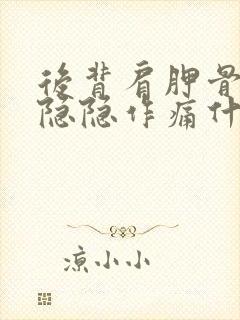 後背肩胛骨
隐隐作痛什
凉小小